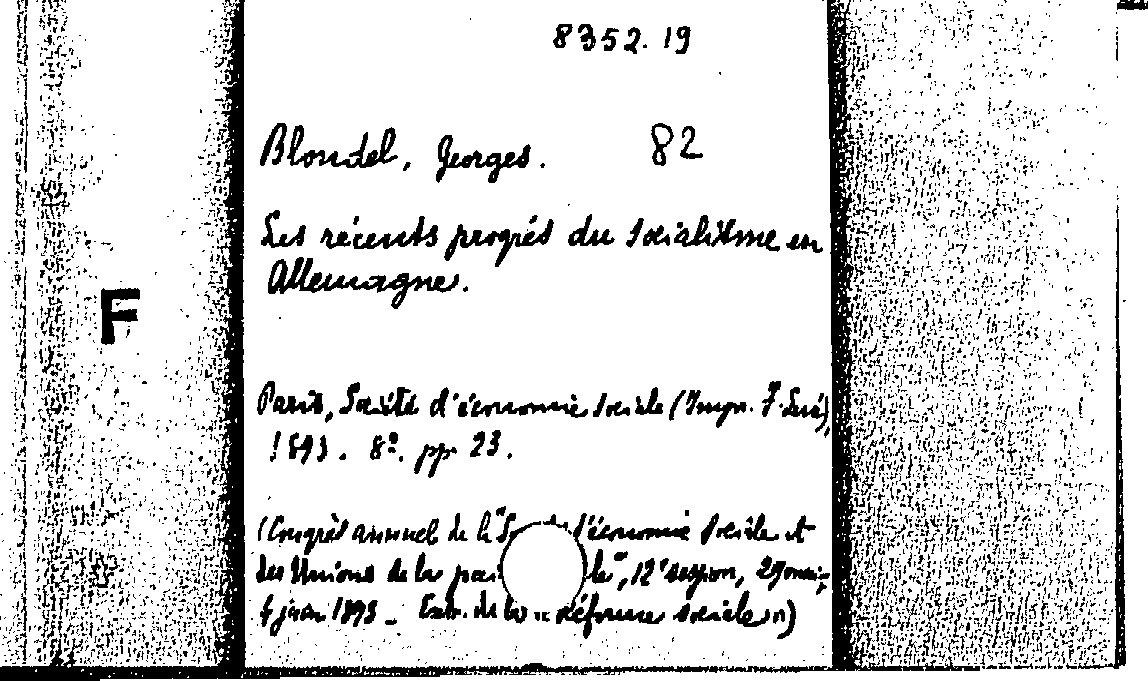 8352.19
Blondel, Georges. 82
Les récents progrès du socialisme en
Allemagne.
F
Paris, Société d'économie sociale (Impr. F. Levé),
1893. 8º. pp 23.
(Congrès annuel de la "So d'économie sociale et
des Unions de la pai le", 12e session, 29 mai-
juin 1893 _ Extr. de la « Réforme sociale »)